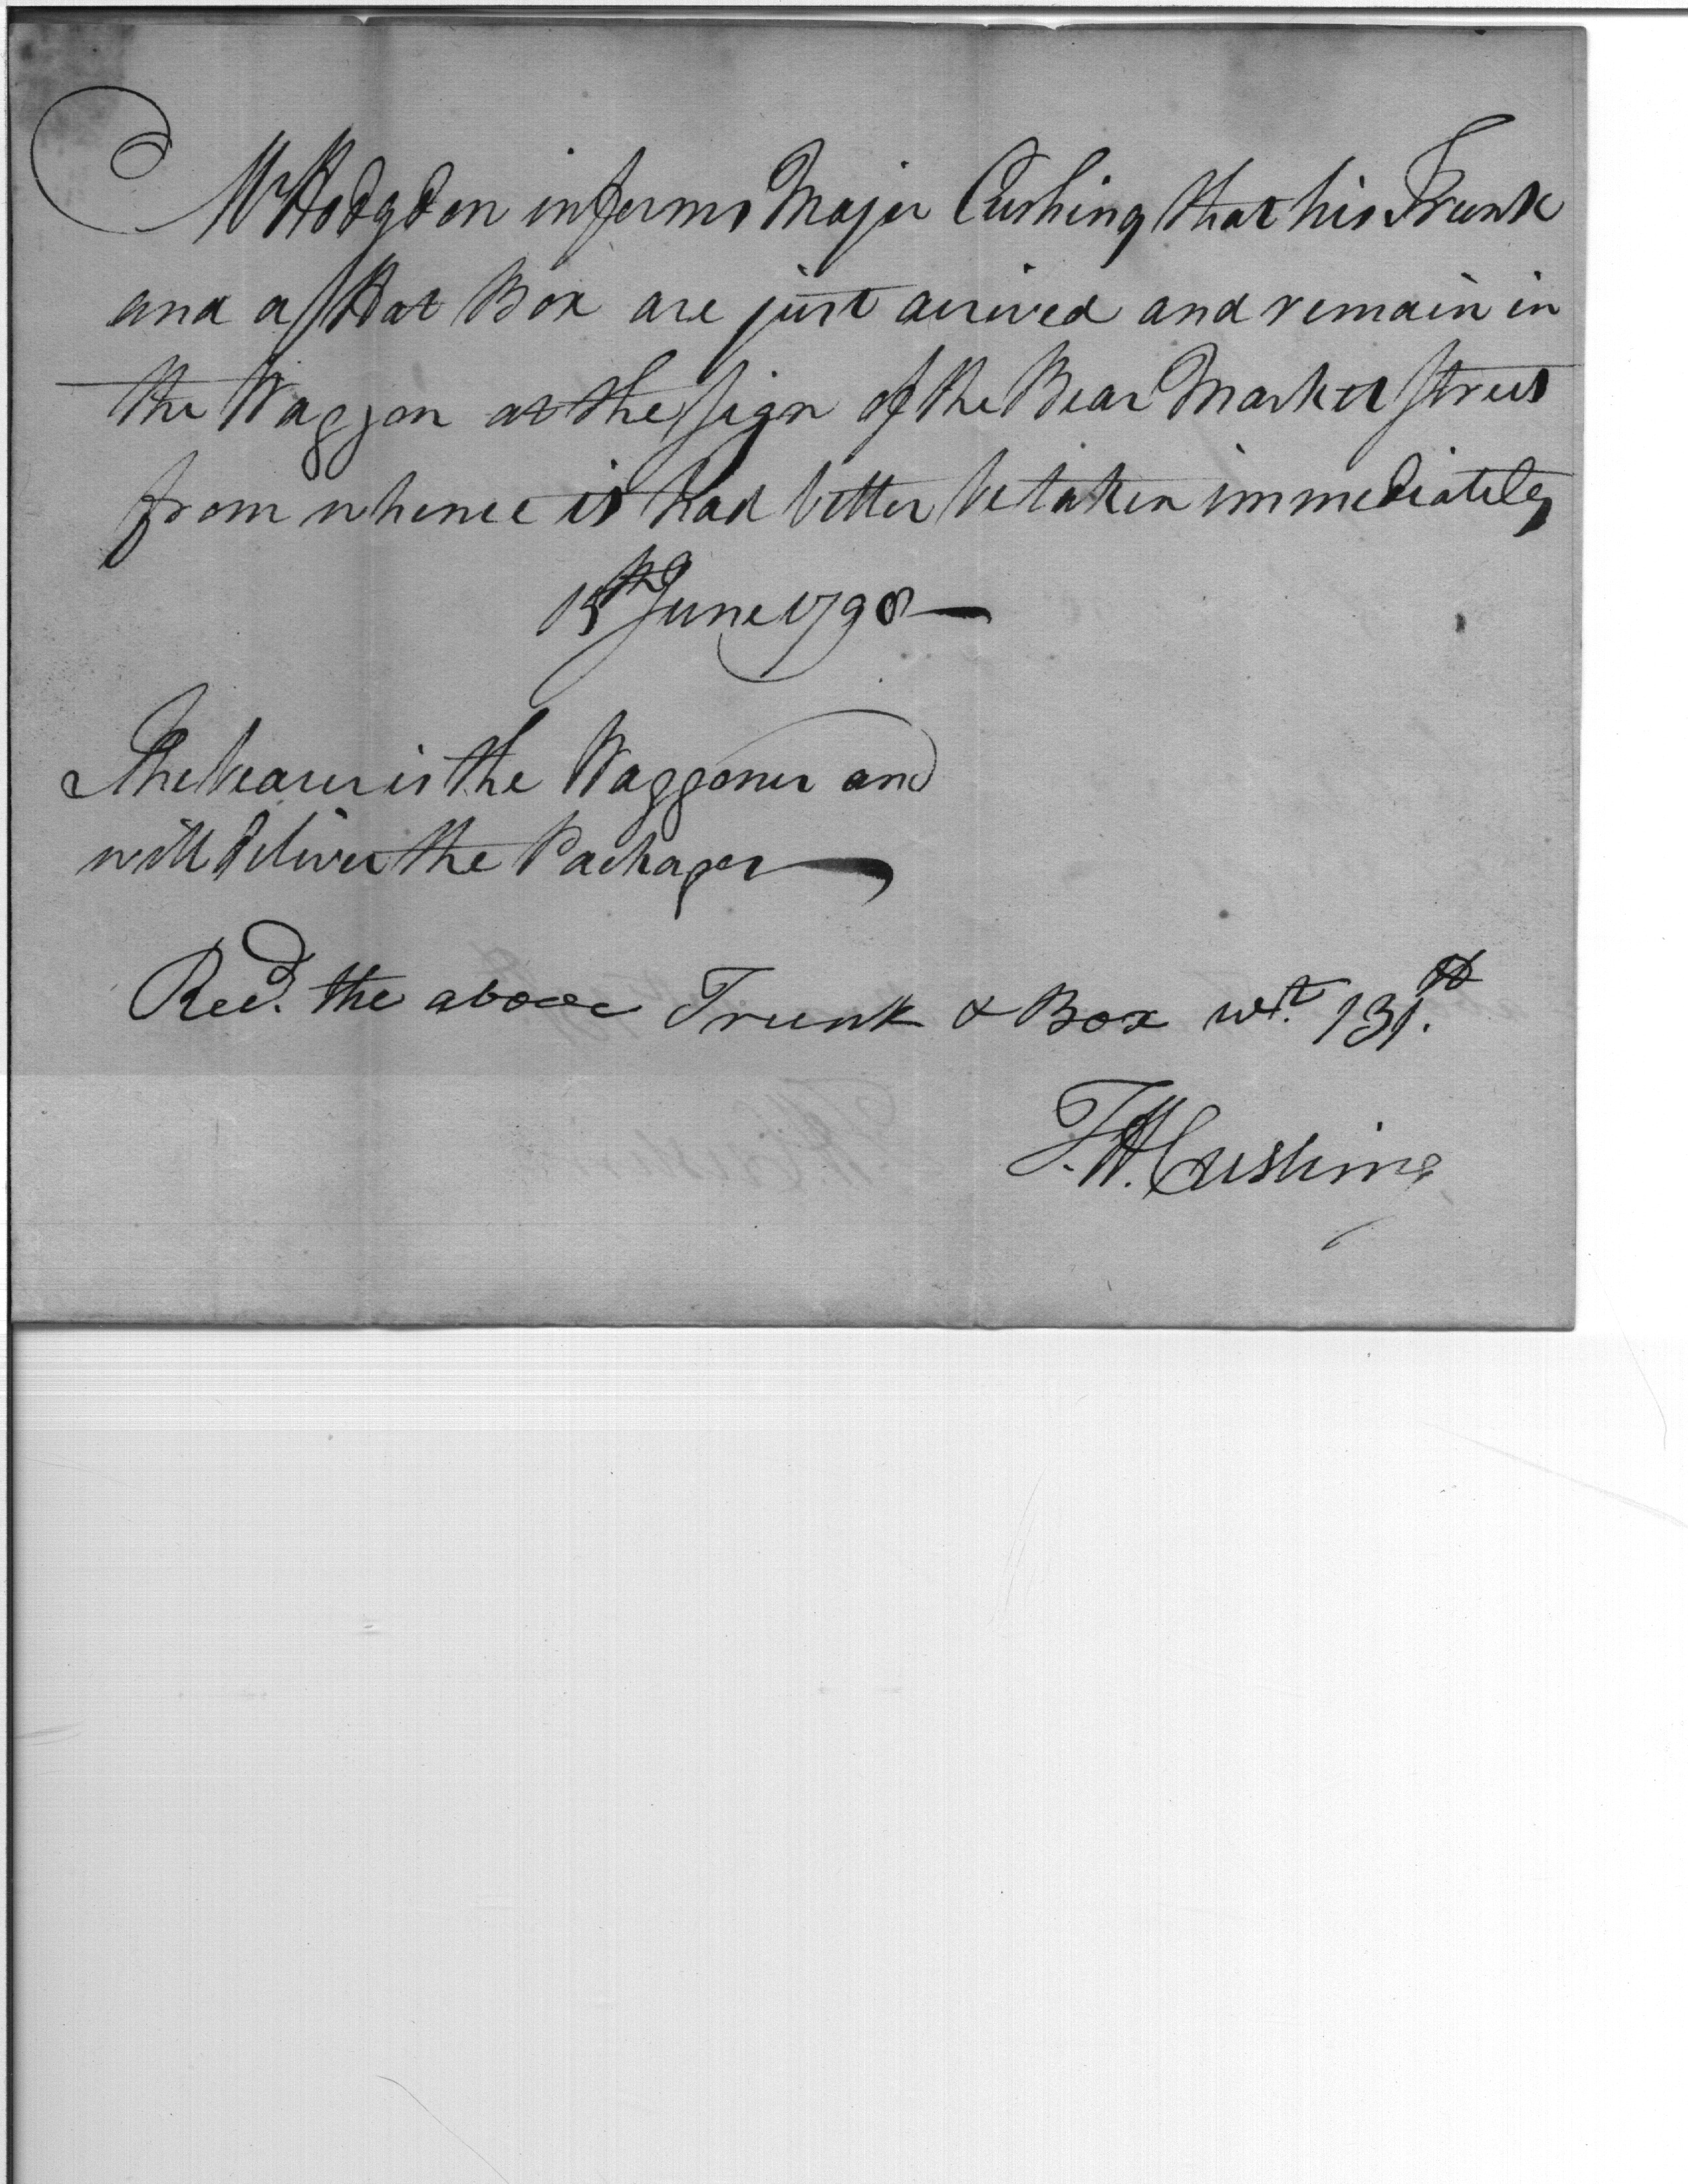 Mr Hodgdon informs Major Cushing that his Trunk
and a Hat Box are just arrived and remain in
the Waggon at the sign of the Bear Market Street
from whence it had better be taken immediately
15th June 1798
The bearer is the Waggoner and
will deliver the Packages
Recd. the above Trunk & Box wt. 131. lb
T. H. Cushing